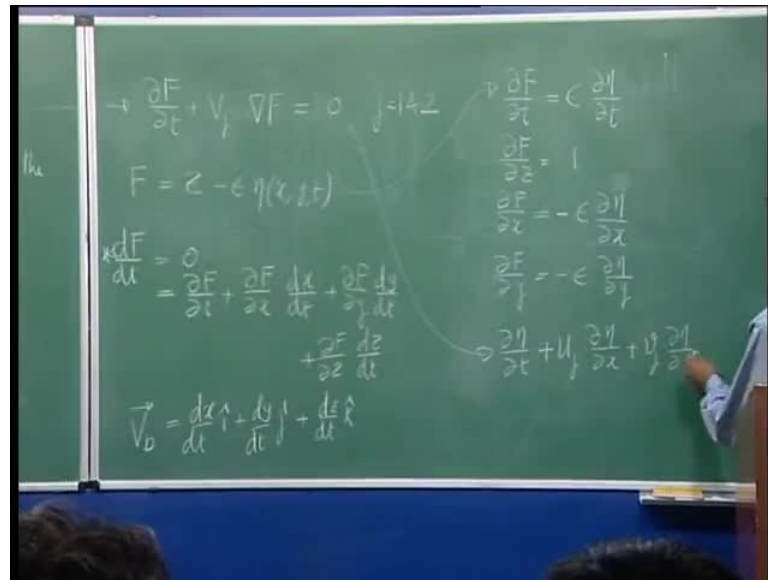 the
→ ∂F/∂t + V_j ∇F = 0 j=1,2
F = z - ϵ η(x, z, t)
*dF/dt = 0
= ∂F/∂t + ∂F/∂x dx/dt + ∂F/∂y dy/dt
+ ∂F/∂z dz/dt
V⃗_D = dx/dt î + dy/dt ĵ + dz/dt k̂
∂F/∂t = ϵ ∂η/∂t
∂F/∂z = 1
∂F/∂x = -ϵ ∂η/∂x
∂F/∂y = -ϵ ∂η/∂y
→ ∂η/∂t + U_j ∂η/∂x + v_j ∂η/∂